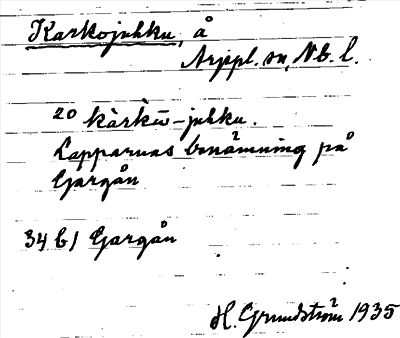 Karkojukku, å
Arjepl. sn, Nb. l.
20 kàrkō-jukku.
Lapparnas benämning på
Gargån
34 b/ Gargån
H. Grundström 1935